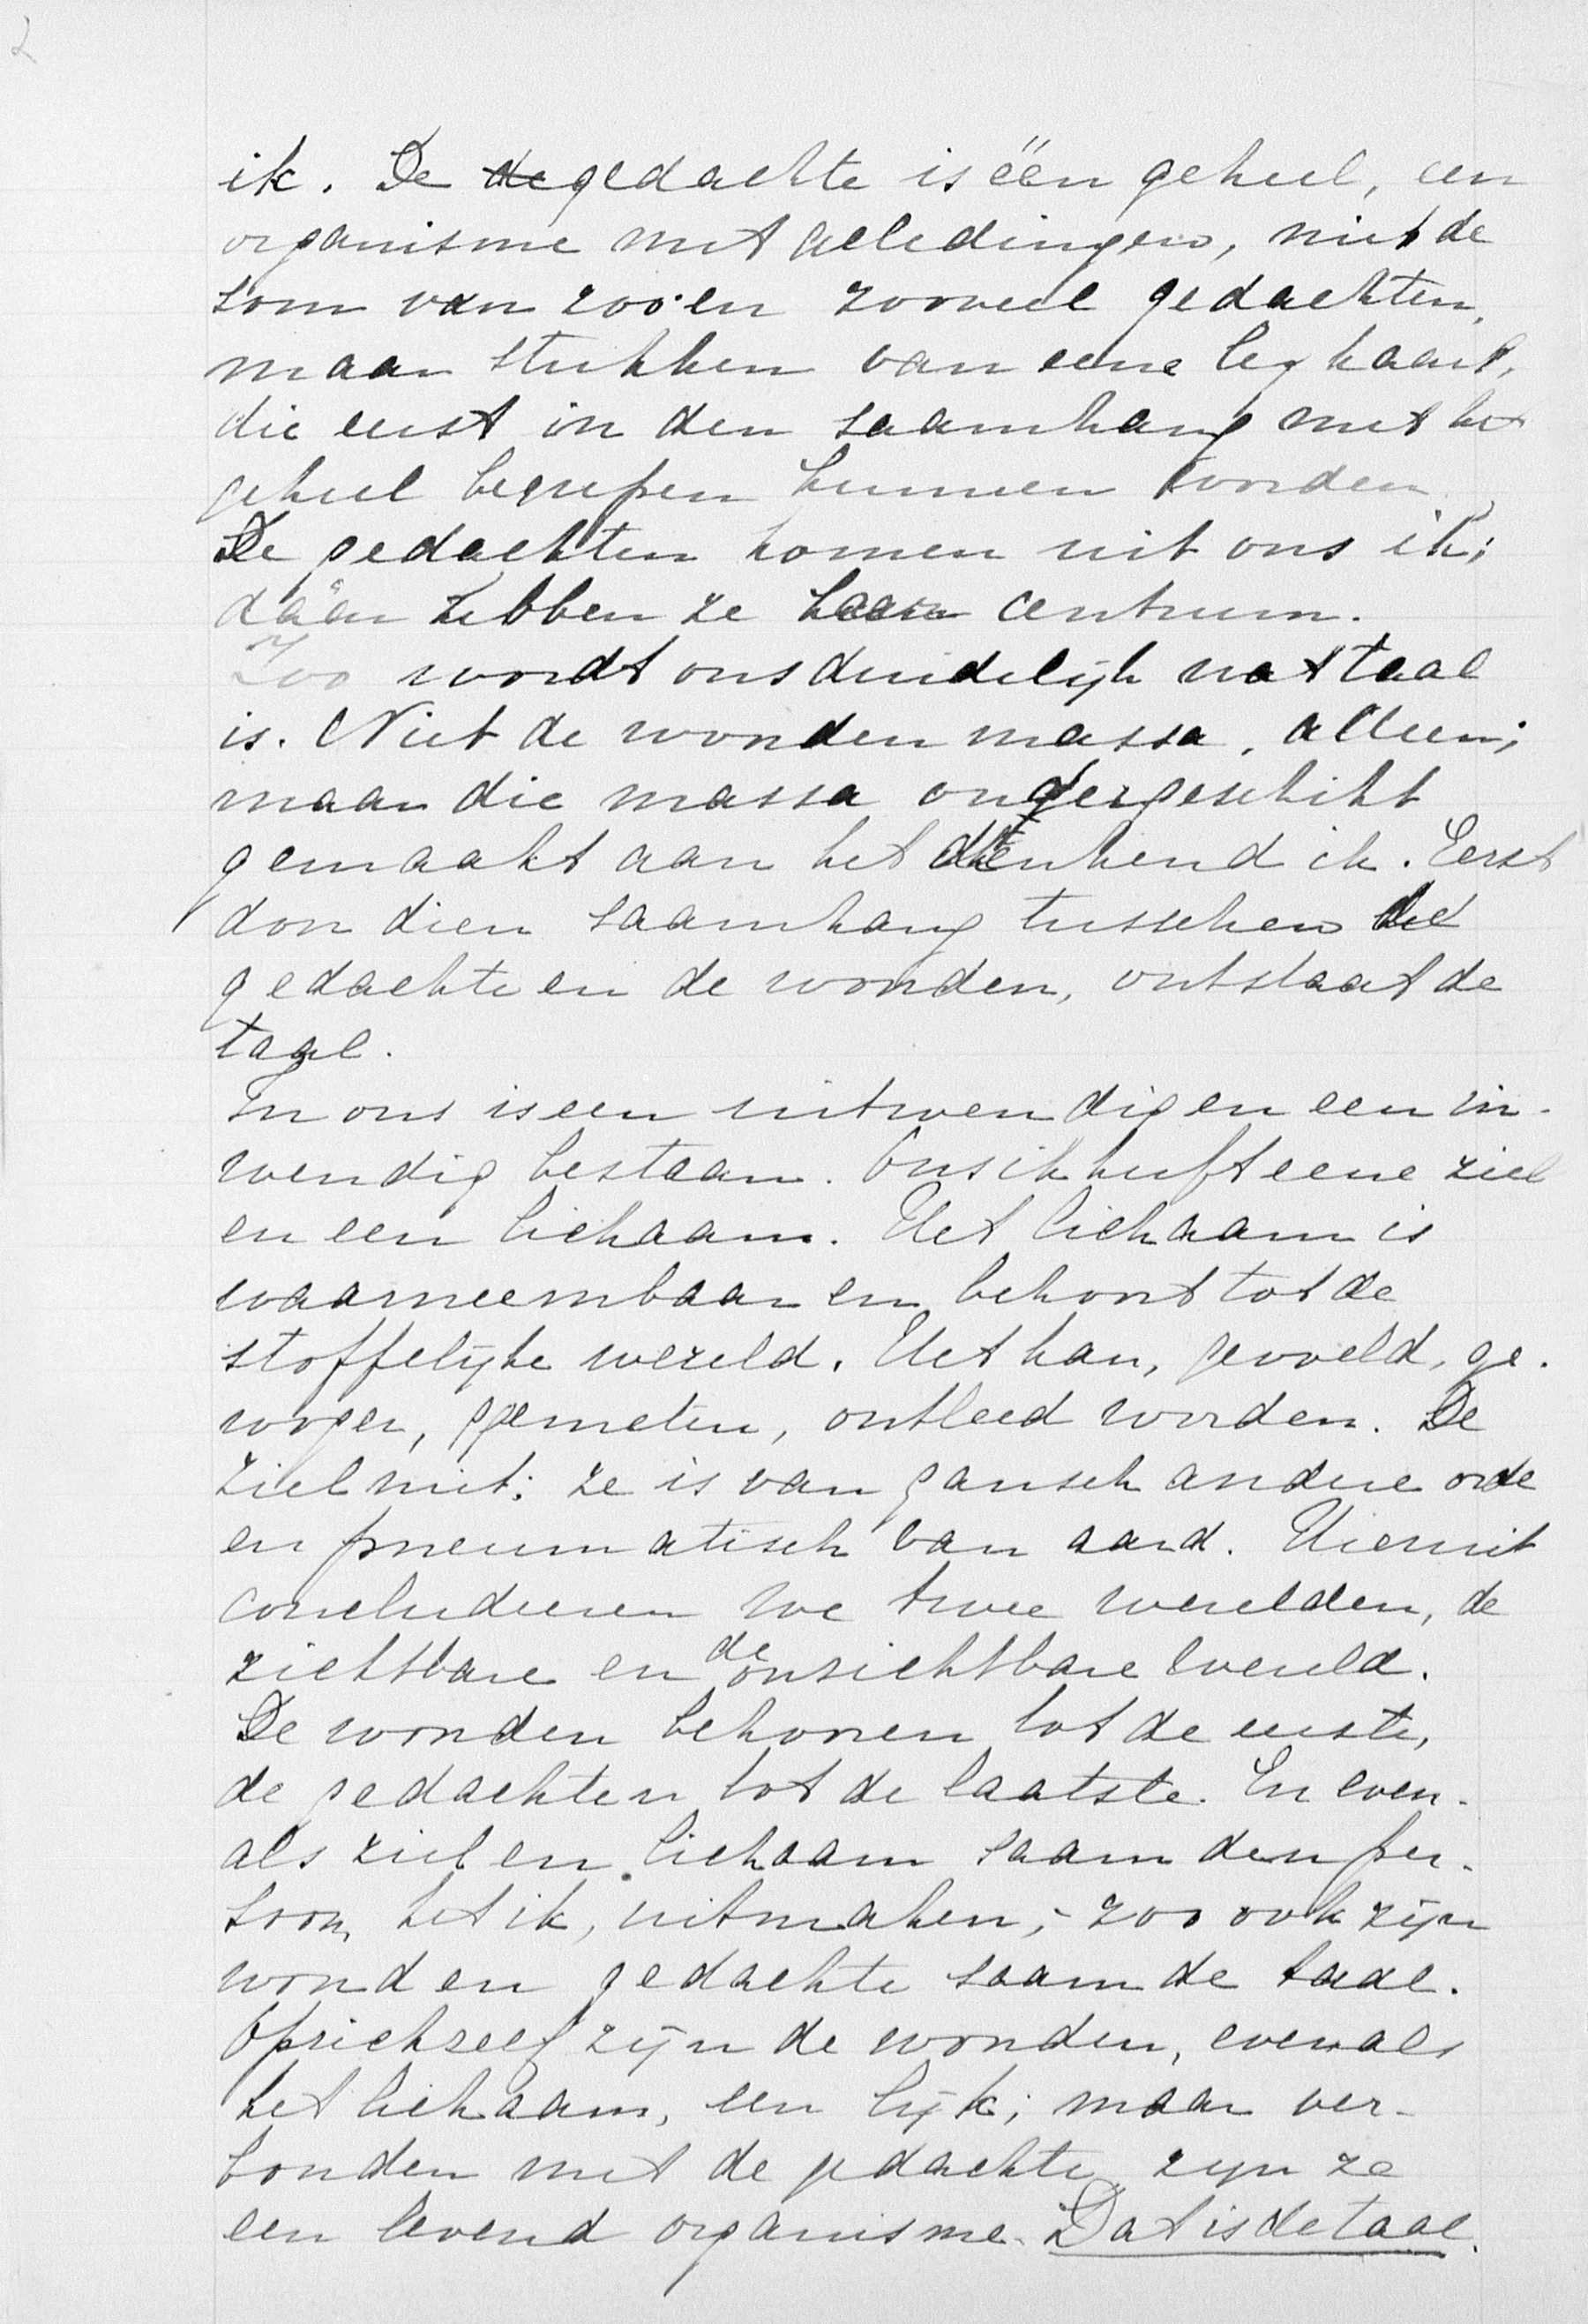 2
ik. De de gedachte is één geheel, een
organisme met geledingen, niet de
som van zoo'en zooveel gedachten,
maar stukken van eene legkaart,
die eerst in den saamhang met het
geheel begrepen kunnen worden.
De gedachten komen uit ons ik;
dáár hebben ze haar centrum.
Zoo wordt ons duidelijk wat taal
is. Niet de woorden massa, alleen;
maar die massa ondergeschikt
gemaakt aan het denkend ik. Eerst
door dien saamhang tusschen de
gedachte en de woorden, ontstaat de
taal.
In ons is een uitwendig en een in-
wendig bestaan. Ons ik heeft eene ziel
en een lichaam. Het lichaam is
waarneembaar en behoort tot de
stoffelijke wereld. Het kan, gevoeld, ge-
wogen, gemeten, ontleed worden. De
ziel niet: ze is van gansch andere orde
en pneumatisch van aard. Hieruit
concludeeren we twee werelden, de
zichtbare en de onzichtbare wereld.
De woorden behooren tot de eerste,
de gedachten tot de laatste. En even-
als ziel en lichaam saam den per-
soon, het ik, uitmaken; - zoo ook zijn
woord en gedachte saam de taal.
Op zich zelf zijn de woorden, evenals
het lichaam, een lijk; maar ver-
bonden met de gedachte zijn ze
een levend organisme. Dat is de taal.